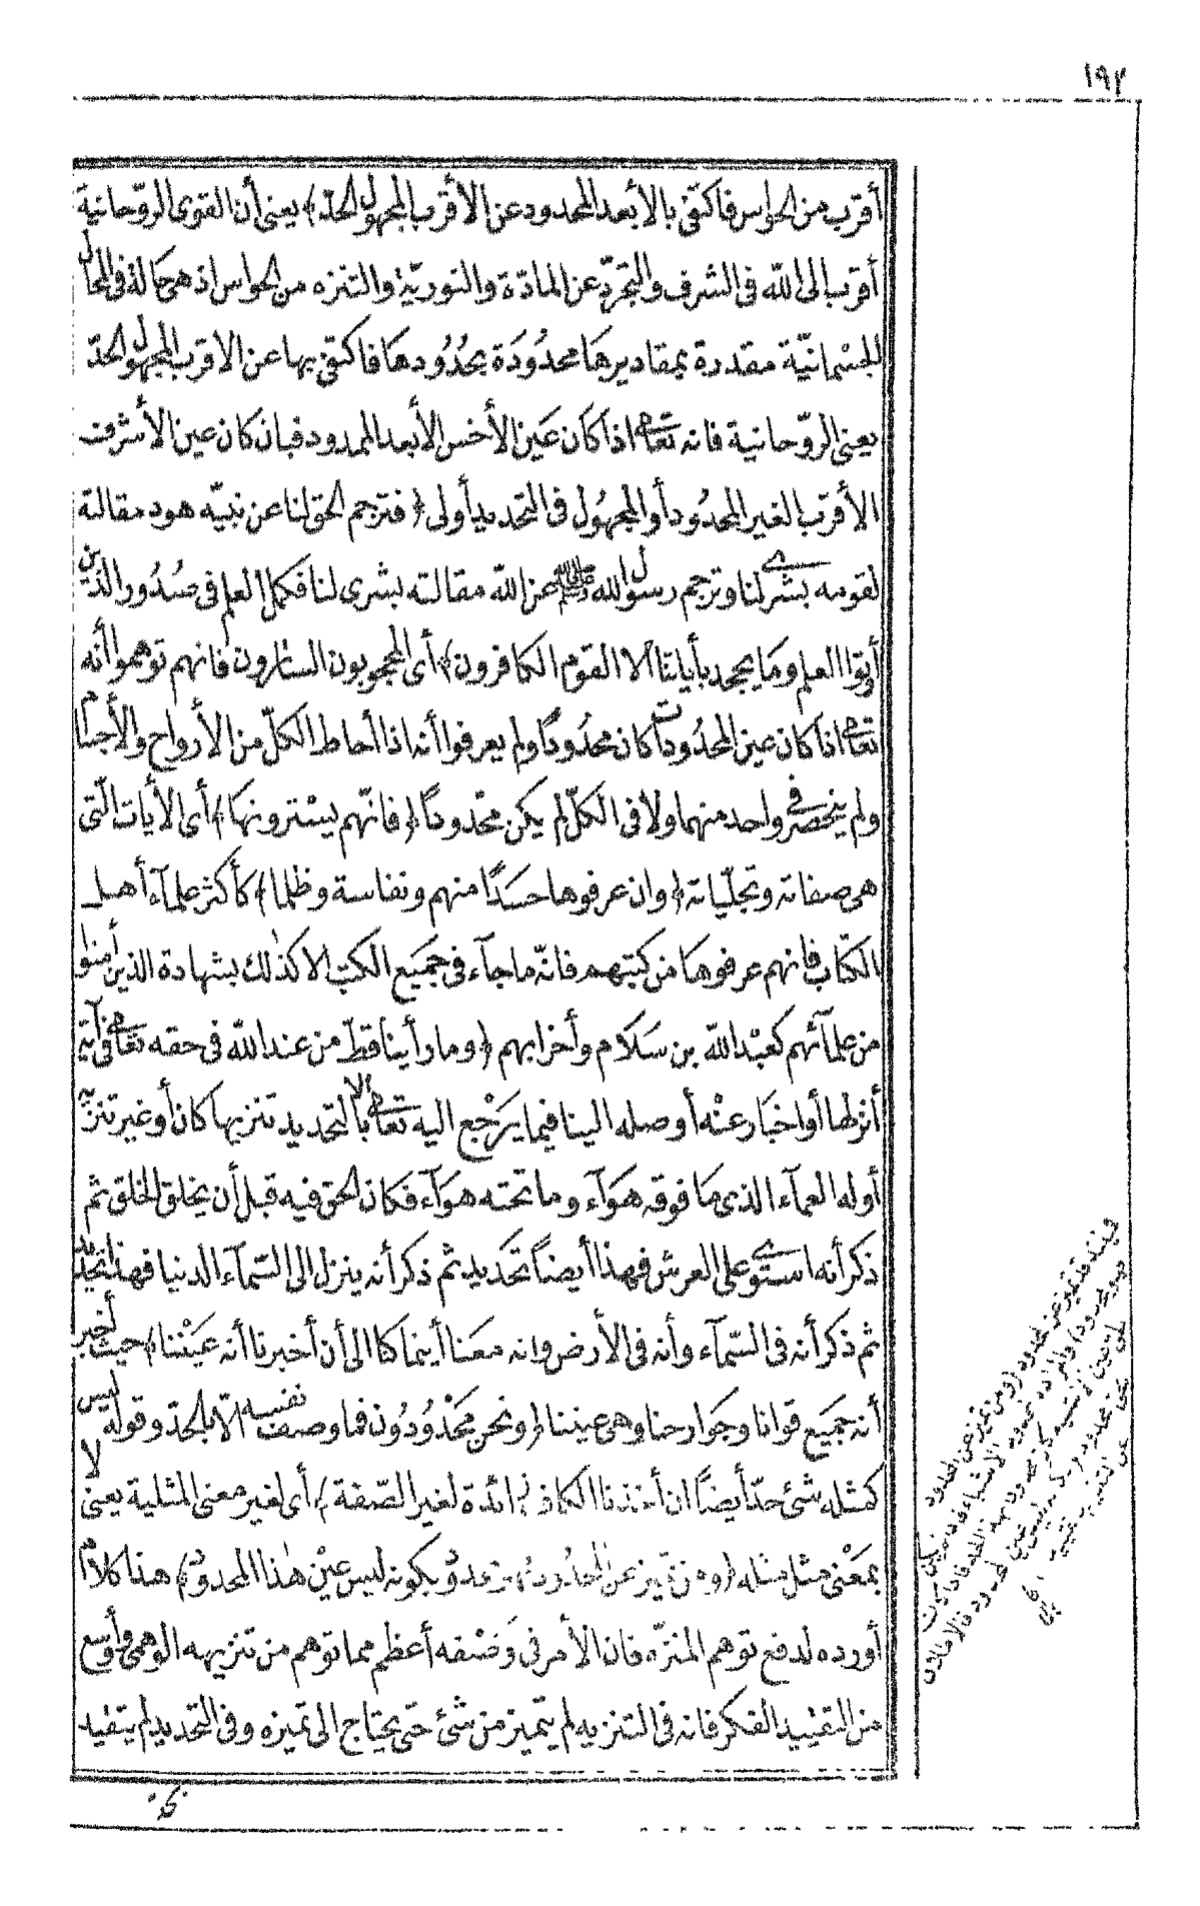 ١٩٢
أقرب من الحواس فاكتفى بالأبعد المحدود عن الأقرب المجهول الحدّ) يعنى أن القوى الروّحانية
أقرب الى اللّه فى الشرف والتجرّد عن المادّة والنوريّة والتنزه من الحواس اذ هى حالة فى المحال
الجسْمانيّة مقدرة بمقاديرها محدُودَة بحُدُودها فاكتفى بها عن الاقرب المجهول الحدّ
يعنى الروّحانية فانه تعالى اذا كان عَين الأخس الأبعد المحدود فبان كان عين الأشرف
الأقرب الغير المحدُود أو المجهُول فى التحديد أولى (فترجم الحق لنا عن نبيّه هود مقالته
لقومه بشرى لنا وترجم رسول الله ﷺ عن اللّه مقالته بشرى لنا فكمل العلم فى صُدُور الذين
أوتوا العلم وما يجحد بأياتنا الا القوم الكافرون) أى المحجوبون الساترون فانهم توهموا أنه
تعالى اذا كان عين المحدُودات كان محدُودًا ولم يعرفوا أنه اذا أحاط الكلّ من الأرواح والأجسام
ولم ينحصر فى واحد منهما ولا فى الكلّ لم يكن محْدودًا (فانّهم يسْترونها) أى الأيات الّتى
هى صفاته وتجلّياته (وان عرفوها حسَدًا منهم ونفاسة وظلما) كأكثر علمآء أهل
الكتاب فانهم عرفوها من كتبهم فانّه ما جآء فى جَميَع الكتب الا كذلك بشهادة الذين أمنوا
من علمآئهم كعبْد اللّه بن سَلَام وأضرابهم (وما رأينا قطّ من عند اللّه فى حقه تعالى فى أية
أنزلها أو اخبَار عنْه أوصله الينا فيما يَرْجع اليه تعالى الا بالتحديد تنزيها كان أو غير تنزيه
أوله العمآء الذى ما فوقه هوَآء وما تحته هوَآء فكان الحق فيه قبل أن يخلق الخلق ثم
ذكر أنه استوى على العرش فهذا أيضًا تحَديد ثم ذكر أنه ينزل الى السّمآء الدنيا فهذا تحديد
ثم ذكر أنه فى السّمآء وأنه فى الأرض وانه معَنا أينما كنا الى أن أخبرنا أنه عَيْننا) حيث أخبر
أنه جَميَع قوانا وجوَارحنا وهى عيننا (ونحن محَدُودُون فما وصف نفسه الّا بالحدّ وقوله ليس
كمثله شئ حدّ أيضًا ان أخذنا الكاف زائدة لغير الصّفة) أى لغير معنى المثلية يعنى لا
بمعْنى مثل مثله (ومن تميز عن المحدُود فهو محدود بكونه ليس عيْن هٰذا المحدود) هذا كلام
أورده لدفع توهم المنزّه فان الأمر فى وَصْفه أعظم مما توهم من تنزيهه الوهمى وأوسع
من التقييد الفكر فانه فى التنزيه لم يتميز من شئ حتى يحتاج الى تميزه وفى التحديد لم يتقيد